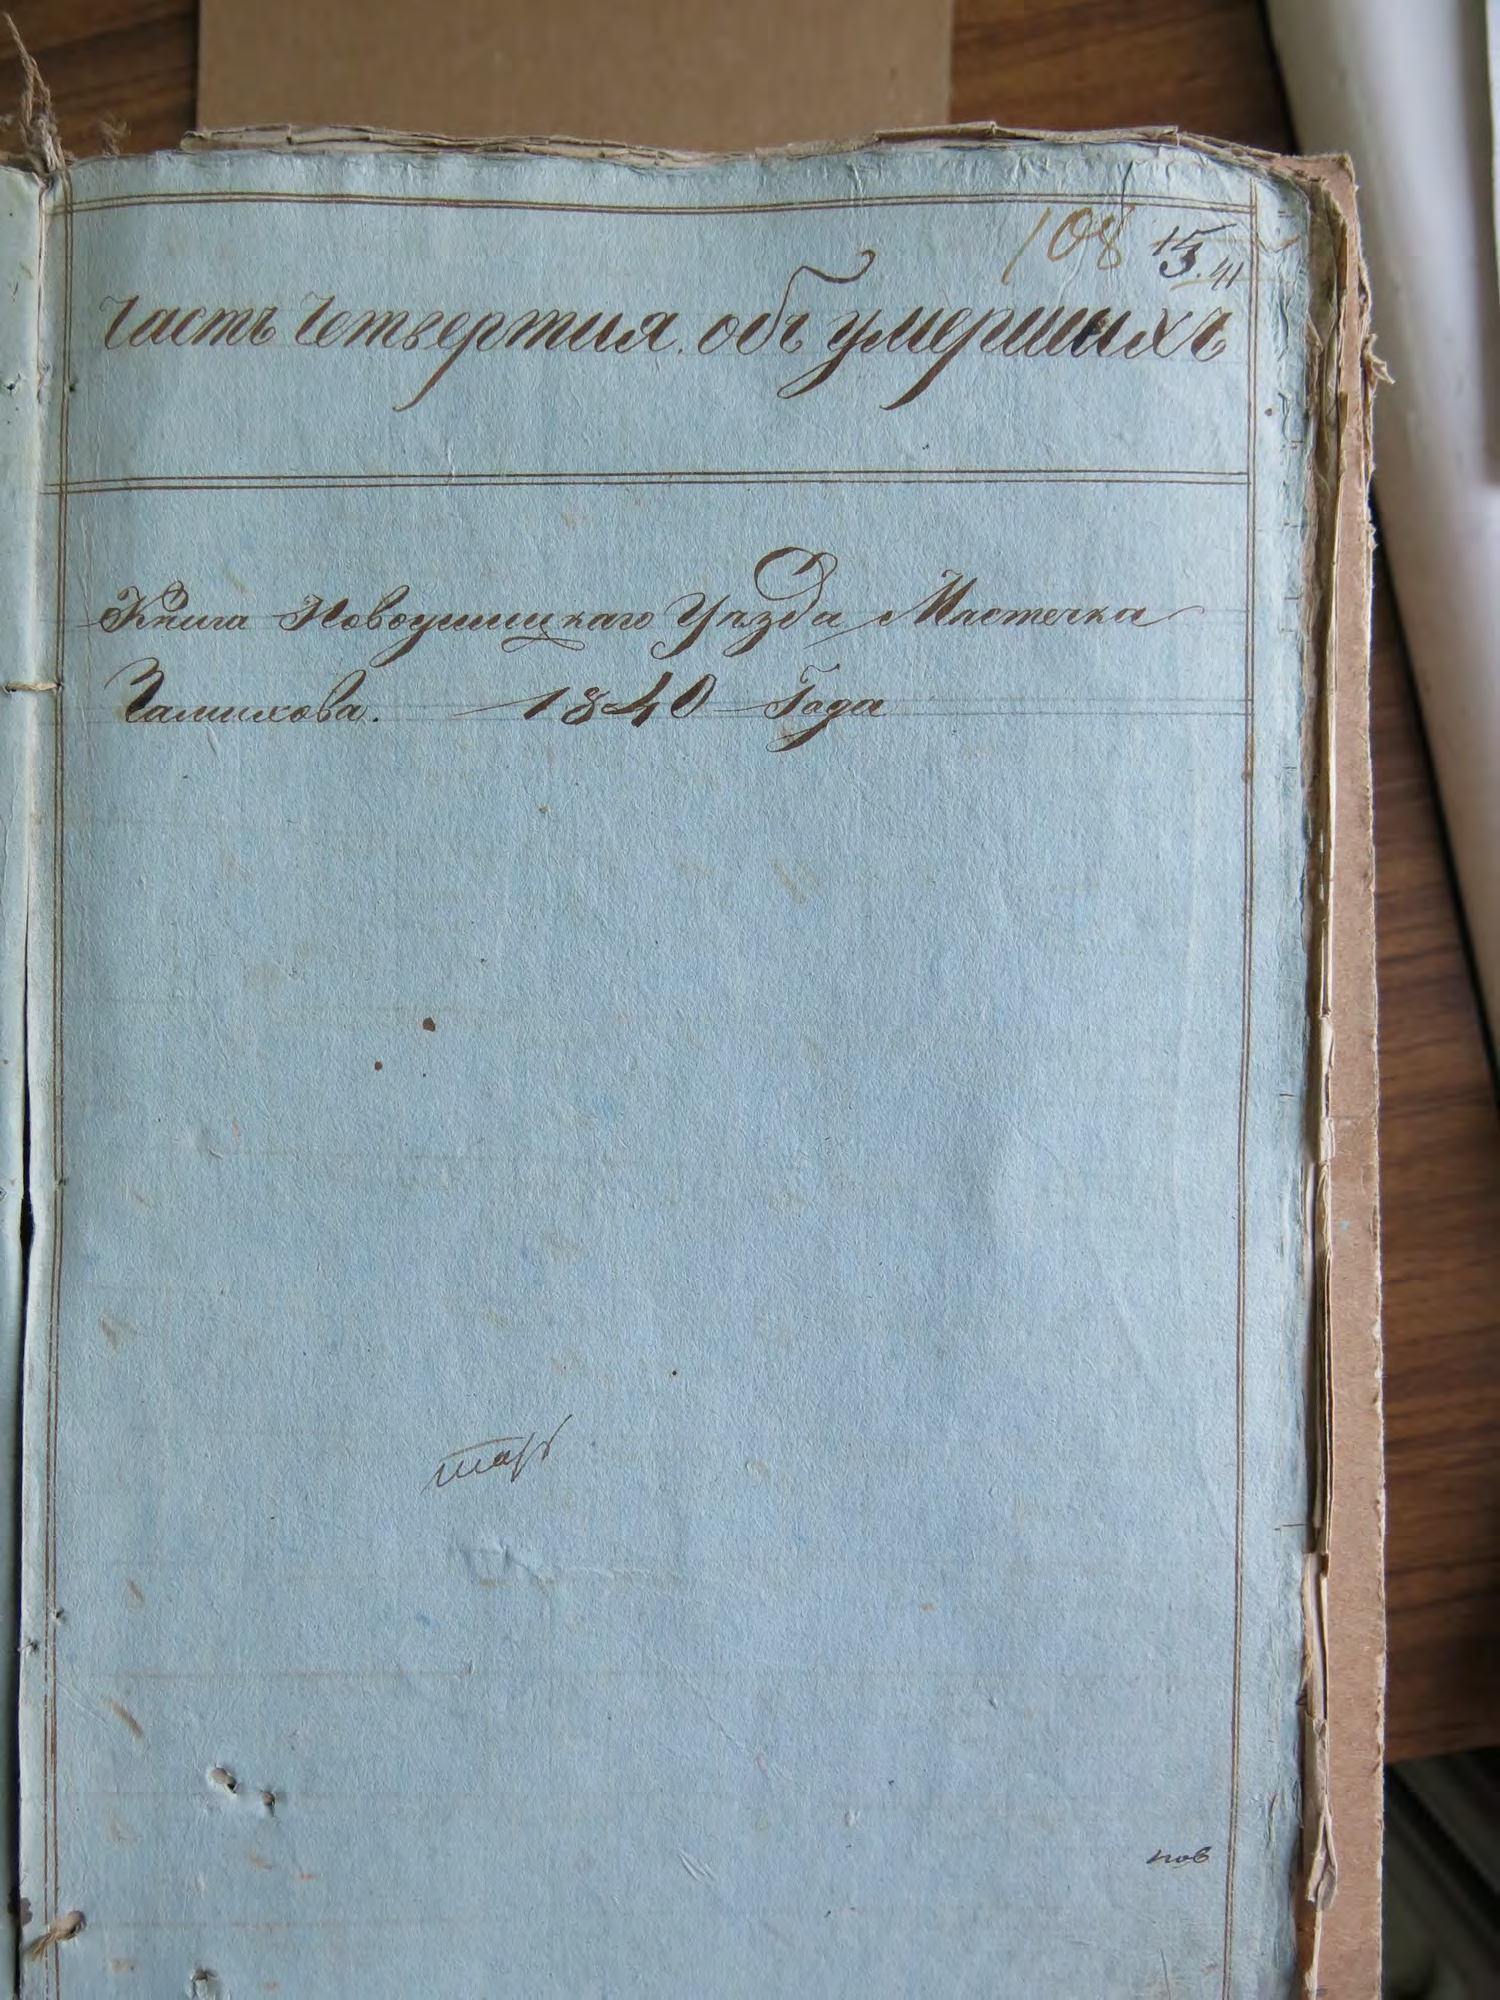 108 15
Часть Четвертая. объ умершихъ
Книга Новоушицкаго Уѣзда Мѣстечка
Замихова. 1840 Года
нов